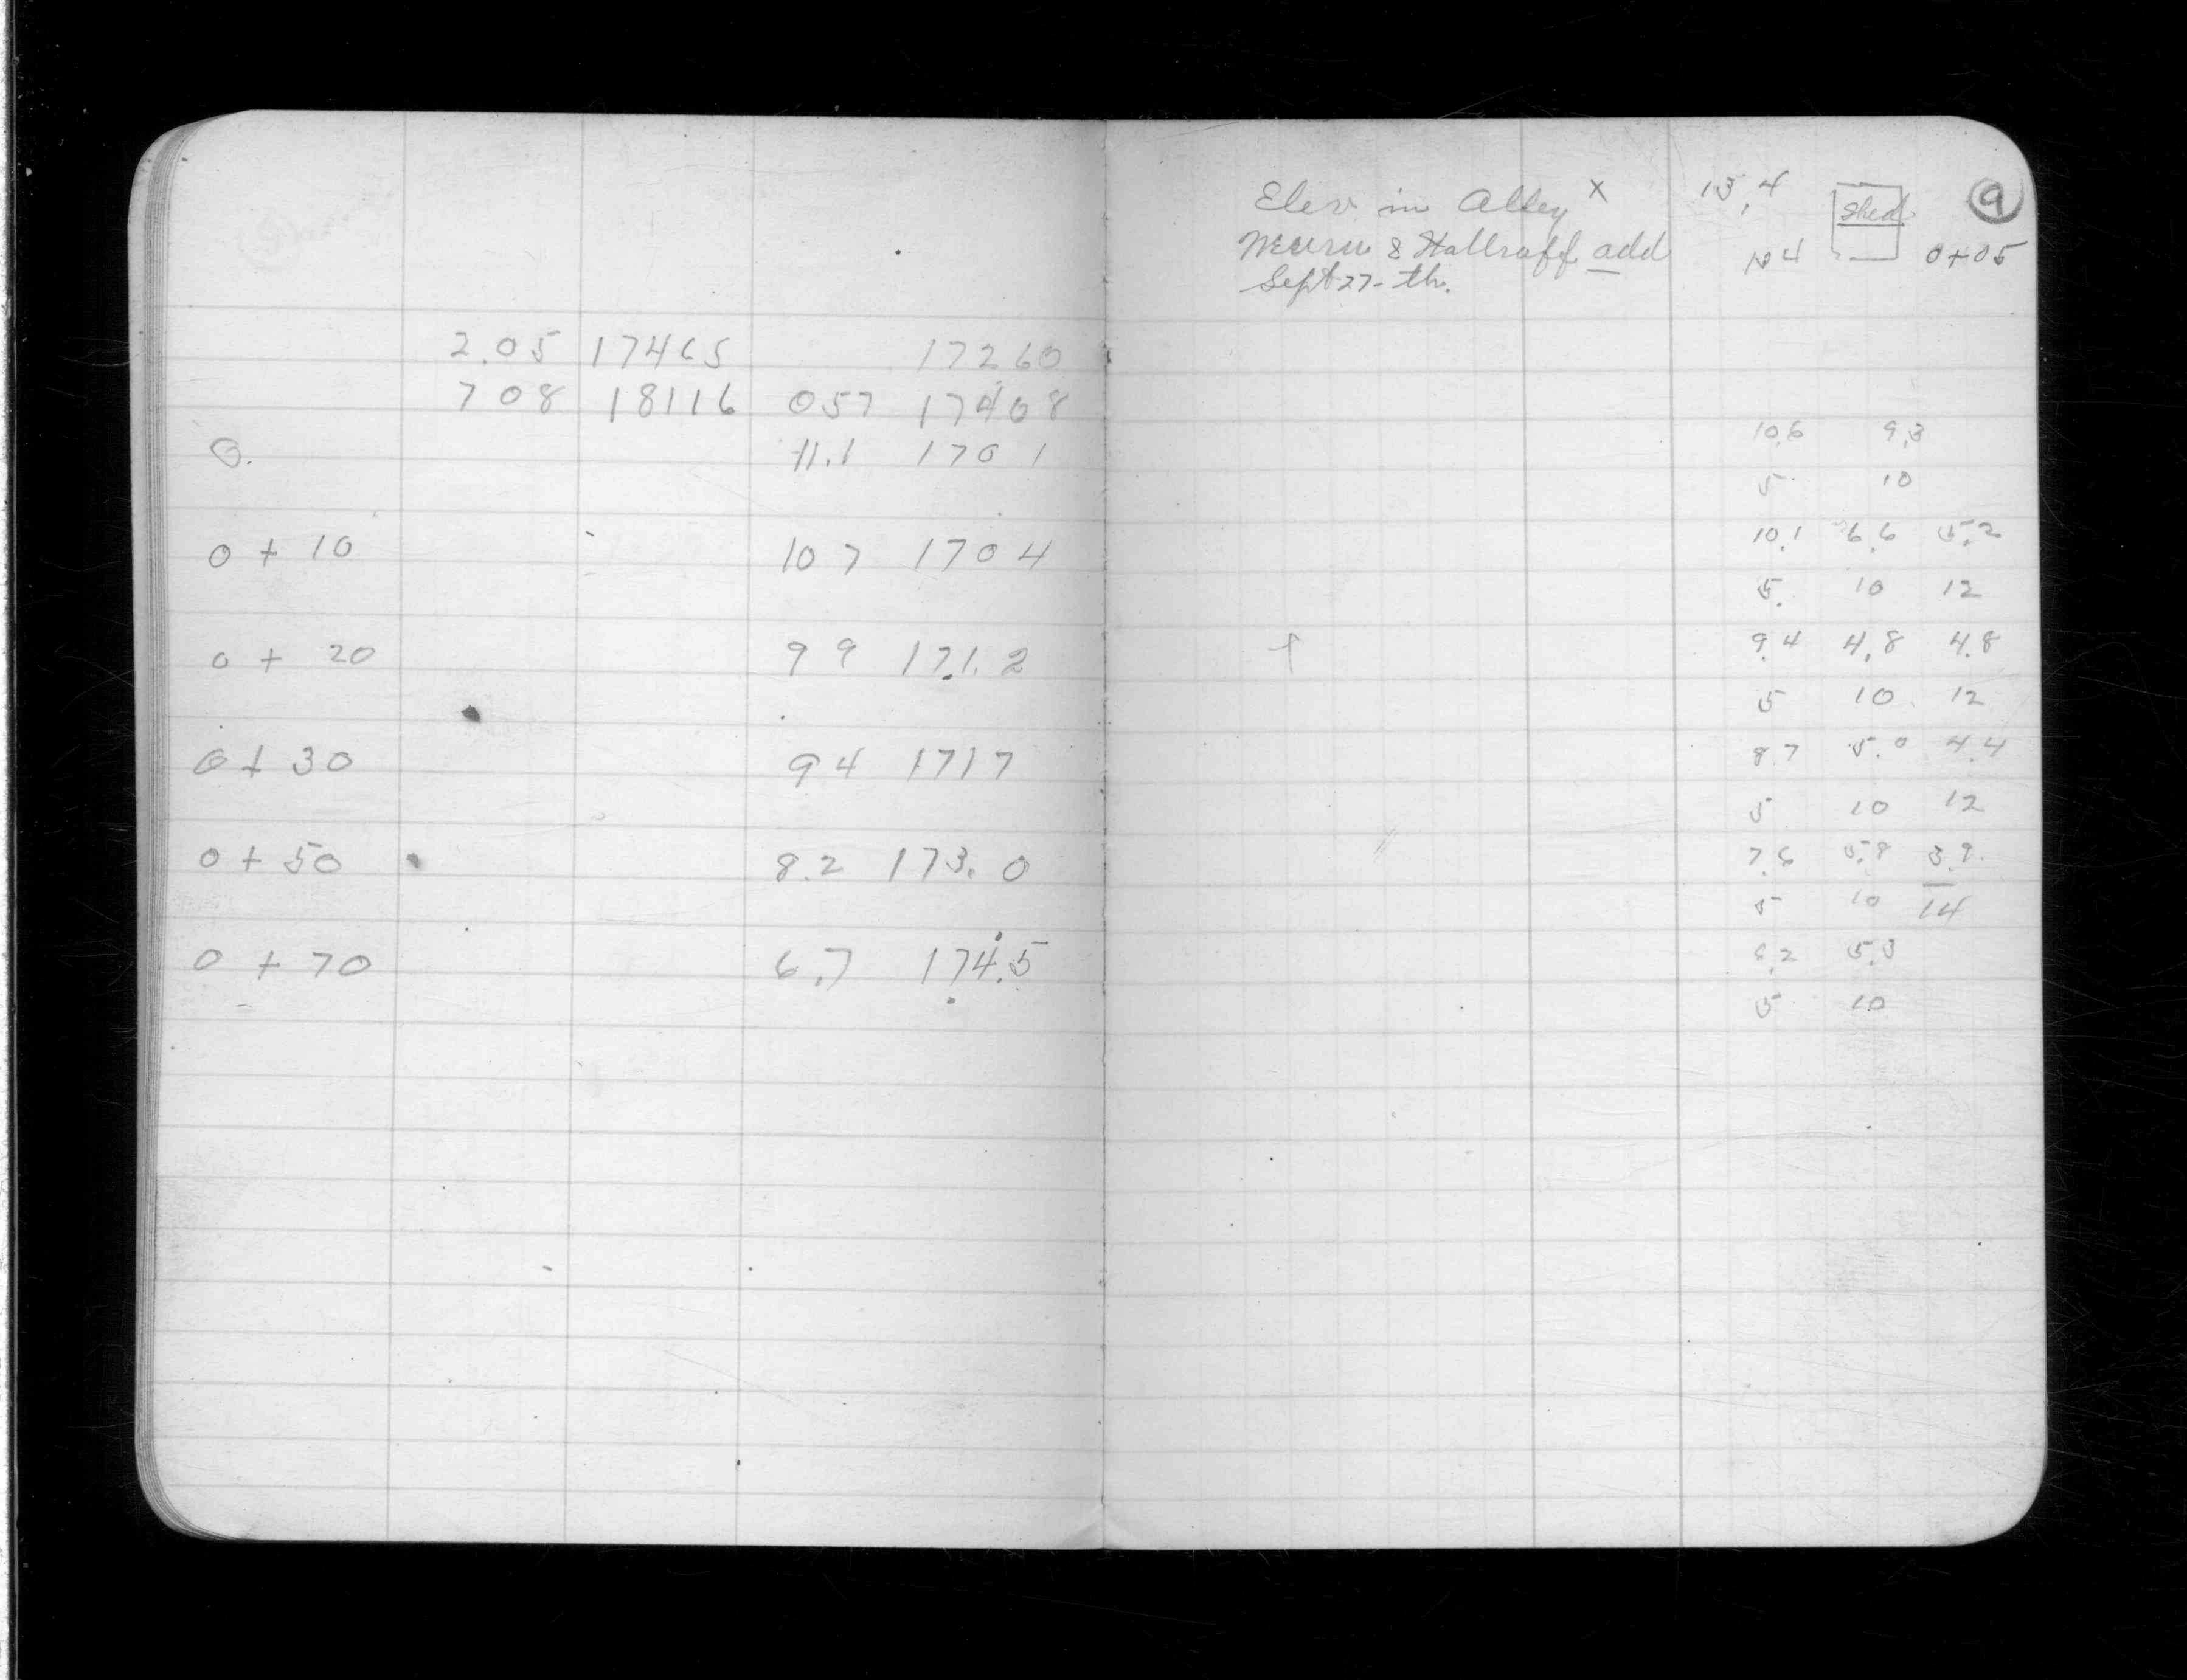 2.05 17465 17260
708 18116 057 17408
0. 11.1 170 1
0 + 10 10 7 170 4
0 + 20 9 9 171. 2
0 + 30 9 4 171 7
0 + 50 8.2 173. 0
0 + 70 6.7 174.5
9
Elev in Alley x 13.4 Shed
& add 0+05
Sept 27-th.
10.6 9.3
5 10
10.1 6.6 5.2
5 10 12
9.4 4.8 4.8
5 10 12
8.7 5.0 4.4
5 10 12
7.6 5.8 3.9
5 10 14
6.2 5.3
5 10